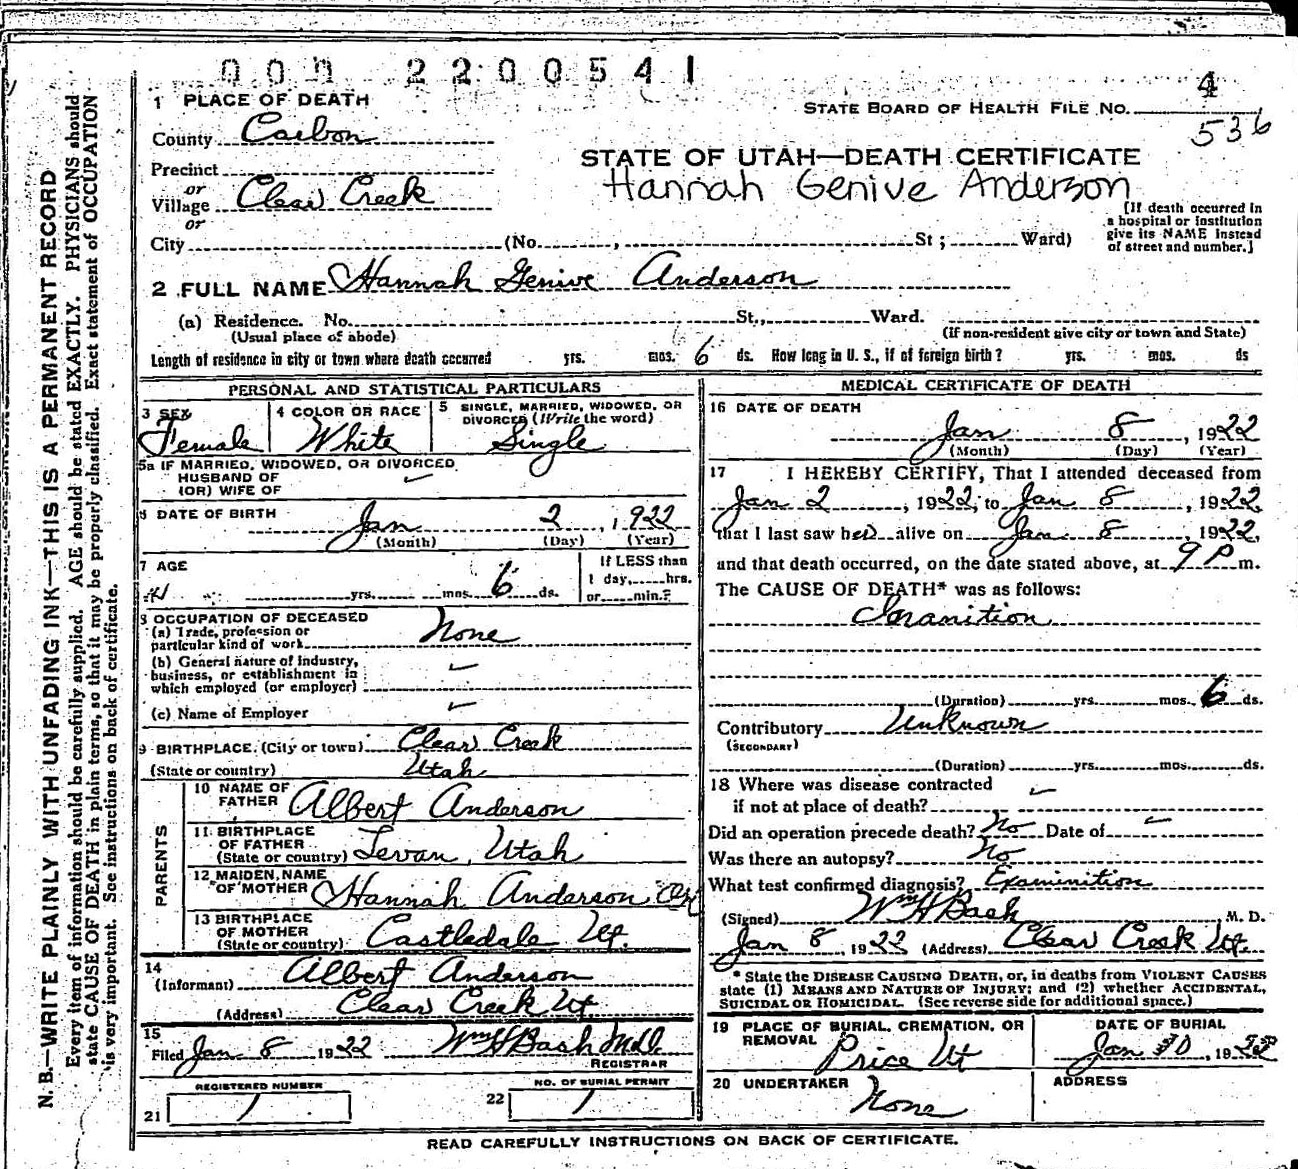 000 2200541
1 PLACE OF DEATH
STATE BOARD OF HEALTH FILE NO. 4
536
County Carbon
STATE OF UTAH—DEATH CERTIFICATE
Precinct
Hannah Genive Anderson
or
Village Clear Creek
or
[If death occurred in
a hospital or institution
give its NAME instead
of street and number.]
City (No. , St ; Ward)
2 FULL NAME Hannah Genive Anderson
(a) Residence. No. St., Ward.
(Usual place of abode) (If non-resident give city or town and State)
Length of residence in city or town where death occurred yrs. mos. 6 ds. How long in U. S., if of foreign birth? yrs. mos. ds
PERSONAL AND STATISTICAL PARTICULARS
3 SEX
Female
4 COLOR OR RACE
White
5 SINGLE, MARRIED, WIDOWED, OR
DIVORCED (Write the word)
Single
5a IF MARRIED, WIDOWED, OR DIVORCED
HUSBAND OF
(OR) WIFE OF
6 DATE OF BIRTH
Jan 2, 1922
(Month) (Day) (Year)
7 AGE
yrs. mos. 6 ds.
If LESS than
1 day, hrs.
or min.?
8 OCCUPATION OF DECEASED
(a) Trade, profession or
particular kind of work None
(b) General nature of Industry,
business, or establishment in
which employed (or employer)
(c) Name of Employer
9 BIRTHPLACE (City or town) Clear Creek
(State or country) Utah
PARENTS
10 NAME OF
FATHER Albert Anderson
11 BIRTHPLACE
OF FATHER
(State or country) Levan, Utah
12 MAIDEN NAME
OF MOTHER Hannah Anderson
13 BIRTHPLACE
OF MOTHER
(State or country) Castledale Ut.
14
(Informant) Albert Anderson
(Address) Clear Creek Ut.
15
Filed Jan 8 1922 Wm H Bash M.D.
REGISTRAR
REGISTERED NUMBER
21 1
NO. OF BURIAL PERMIT
22 1
MEDICAL CERTIFICATE OF DEATH
16 DATE OF DEATH
Jan 8, 1922
(Month) (Day) (Year)
17 I HEREBY CERTIFY, That I attended deceased from
Jan 2, 1922, to Jan 8, 1922,
that I last saw her alive on Jan. 8, 1922,
and that death occurred, on the date stated above, at 9 P m.
The CAUSE OF DEATH* was as follows:
(Duration) yrs. mos. 6 ds.
Contributory Unknown
(SECONDARY)
(Duration) yrs. mos. ds.
18 Where was disease contracted
if not at place of death?
Did an operation precede death? No Date of
Was there an autopsy? No
What test confirmed diagnosis? Examinition
(Signed) Wm H Bash, M. D.
Jan 8, 1922 (Address) Clear Creek Ut
* State the DISEASE CAUSING DEATH, or, in deaths from VIOLENT CAUSES
state (1) MEANS AND NATURE OF INJURY; and (2) whether ACCIDENTAL,
SUICIDAL OR HOMICIDAL. (See reverse side for additional space.)
19 PLACE OF BURIAL, CREMATION, OR
REMOVAL
Price Ut
DATE OF BURIAL
Jan 10, 1922
20 UNDERTAKER
None
ADDRESS
READ CAREFULLY INSTRUCTIONS ON BACK OF CERTIFICATE.
N. B.—WRITE PLAINLY WITH UNFADING INK—THIS IS A PERMANENT RECORD
Every item of information should be carefully supplied. AGE should be stated EXACTLY. PHYSICIANS should
state CAUSE OF DEATH in plain terms, so that it may be properly classified. Exact statement of OCCUPATION
is very important. See instructions on back of certificate.